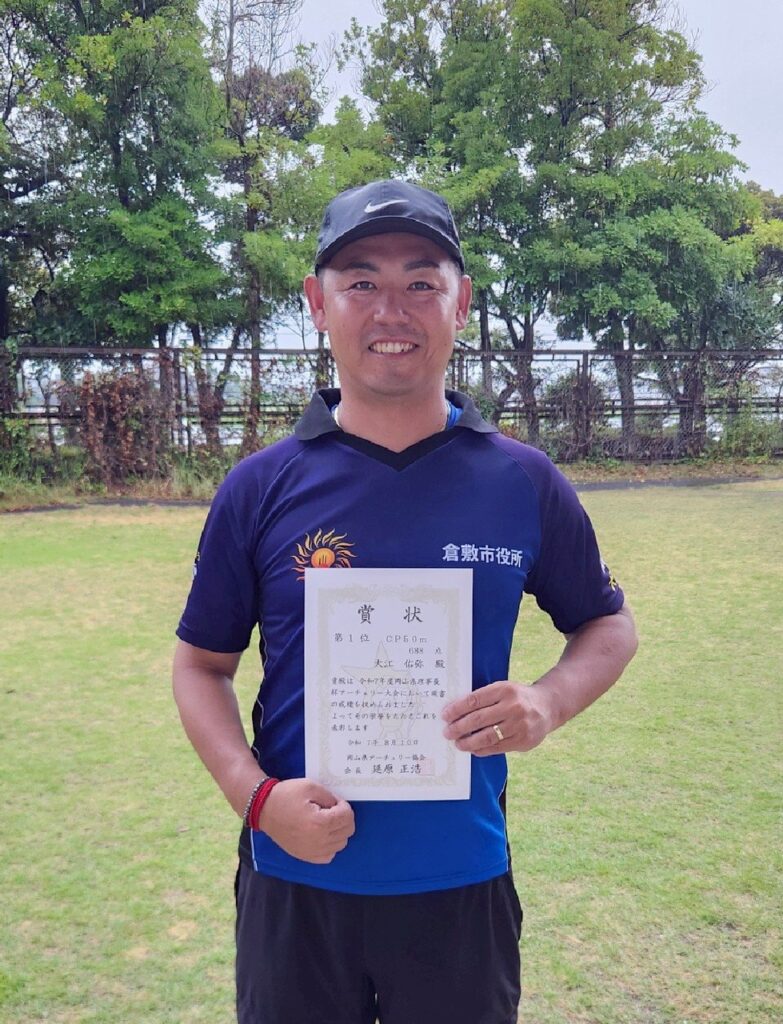 倉敷市役所
賞 状
第1位 CP50m
688 点
大江 佑弥 殿
貴殿は 令和7年度岡山県理事長
杯アーチェリー大会において頭書
の成績を収められました
よってその栄誉をたたえこれを
表彰します
令和 7年 8月10日
岡山県アーチェリー協会
会長 延原 正浩